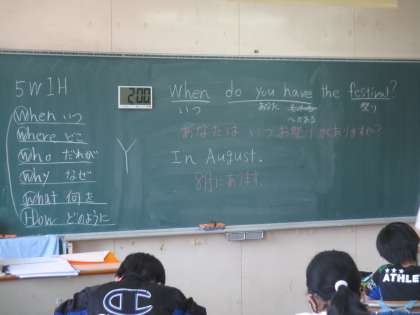 5W1H
When いつ
Where どこ
Who だれが
Why なぜ
What 何を
How どのように
2:00
When do you have the festival?
いつ あなた 祭り
あなたは いつ お祭りがありますか?
In August.
8月にあります。
ATHLE